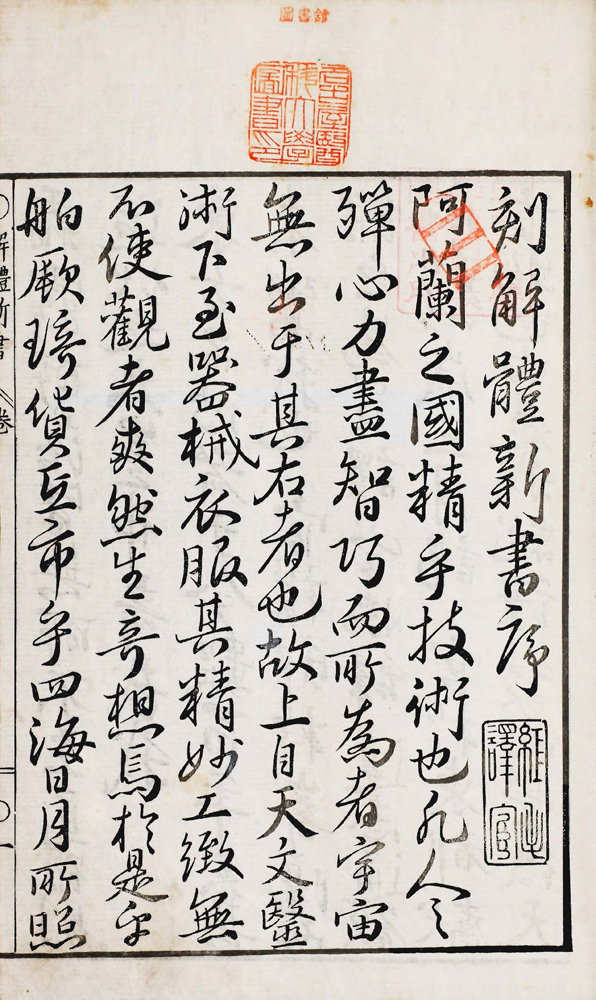 圖書館
刻解體新書序
譯官
阿蘭之國精乎技術也凡人之
殫心力盡智巧而所為者宇宙
無出于其右者也故上自天文醫
術下至器械衣服其精妙工緻無
不使觀者爽然生奇想焉於是乎
舶厥琦貨互市乎四海日月所照
解體新書 卷